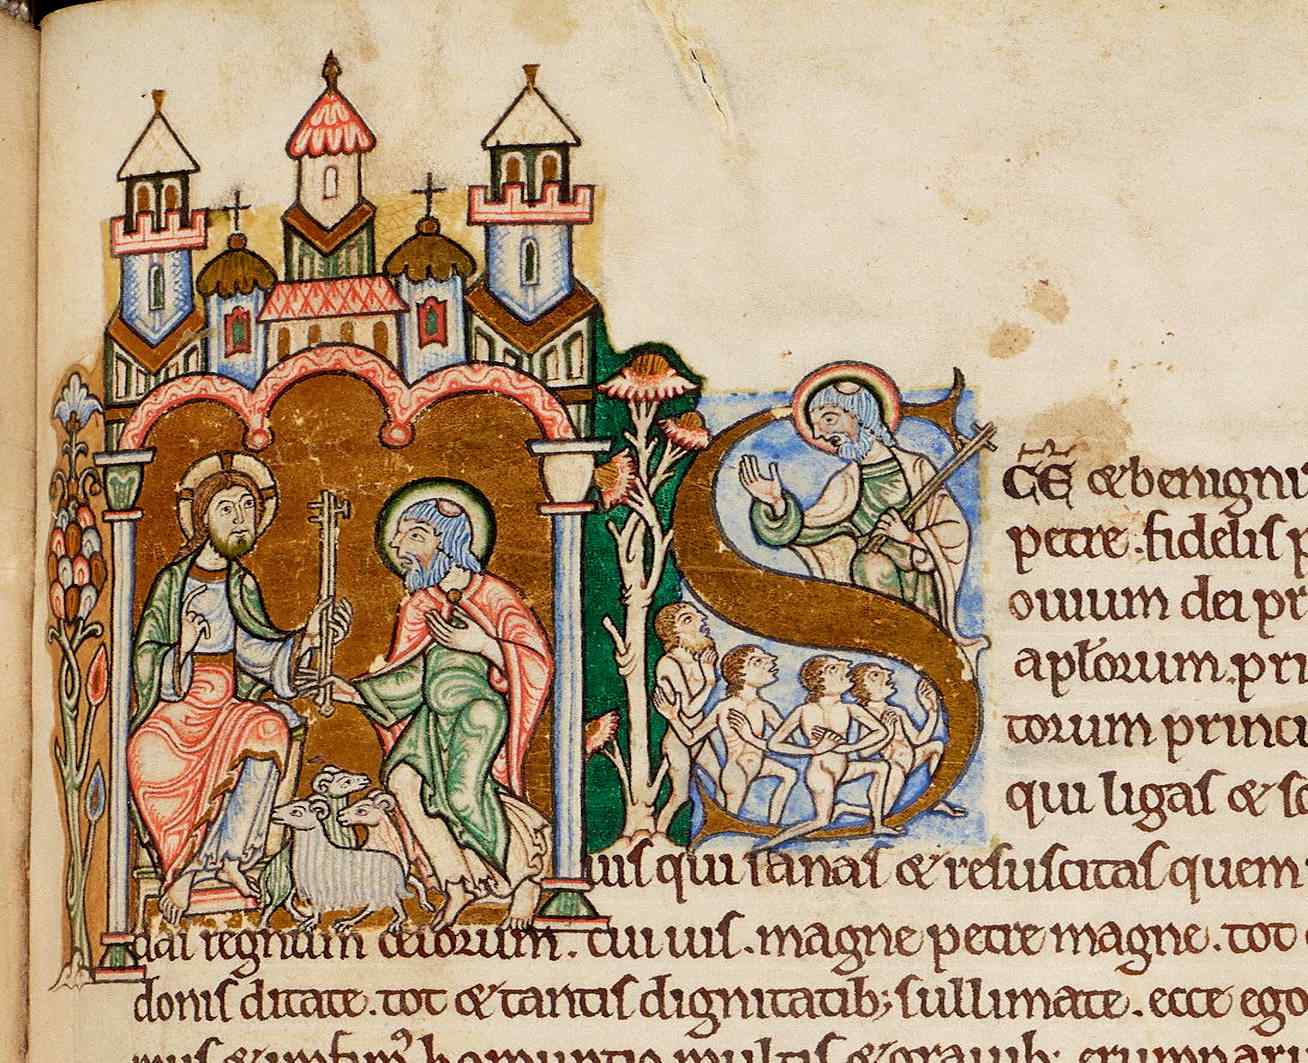 S C̄E & benigni
petre. fidelis p
ouium dei pr
apl̄orum. pri
torum princi
qui ligas & so
uis qui sanas & resuscitas quem
das regnum celorum. cui uis. magne petre magne. tot
donis ditate. tot & tantis dignitatib; sullimate. ecce ego
mus & infim' homuntio multis & grauib;